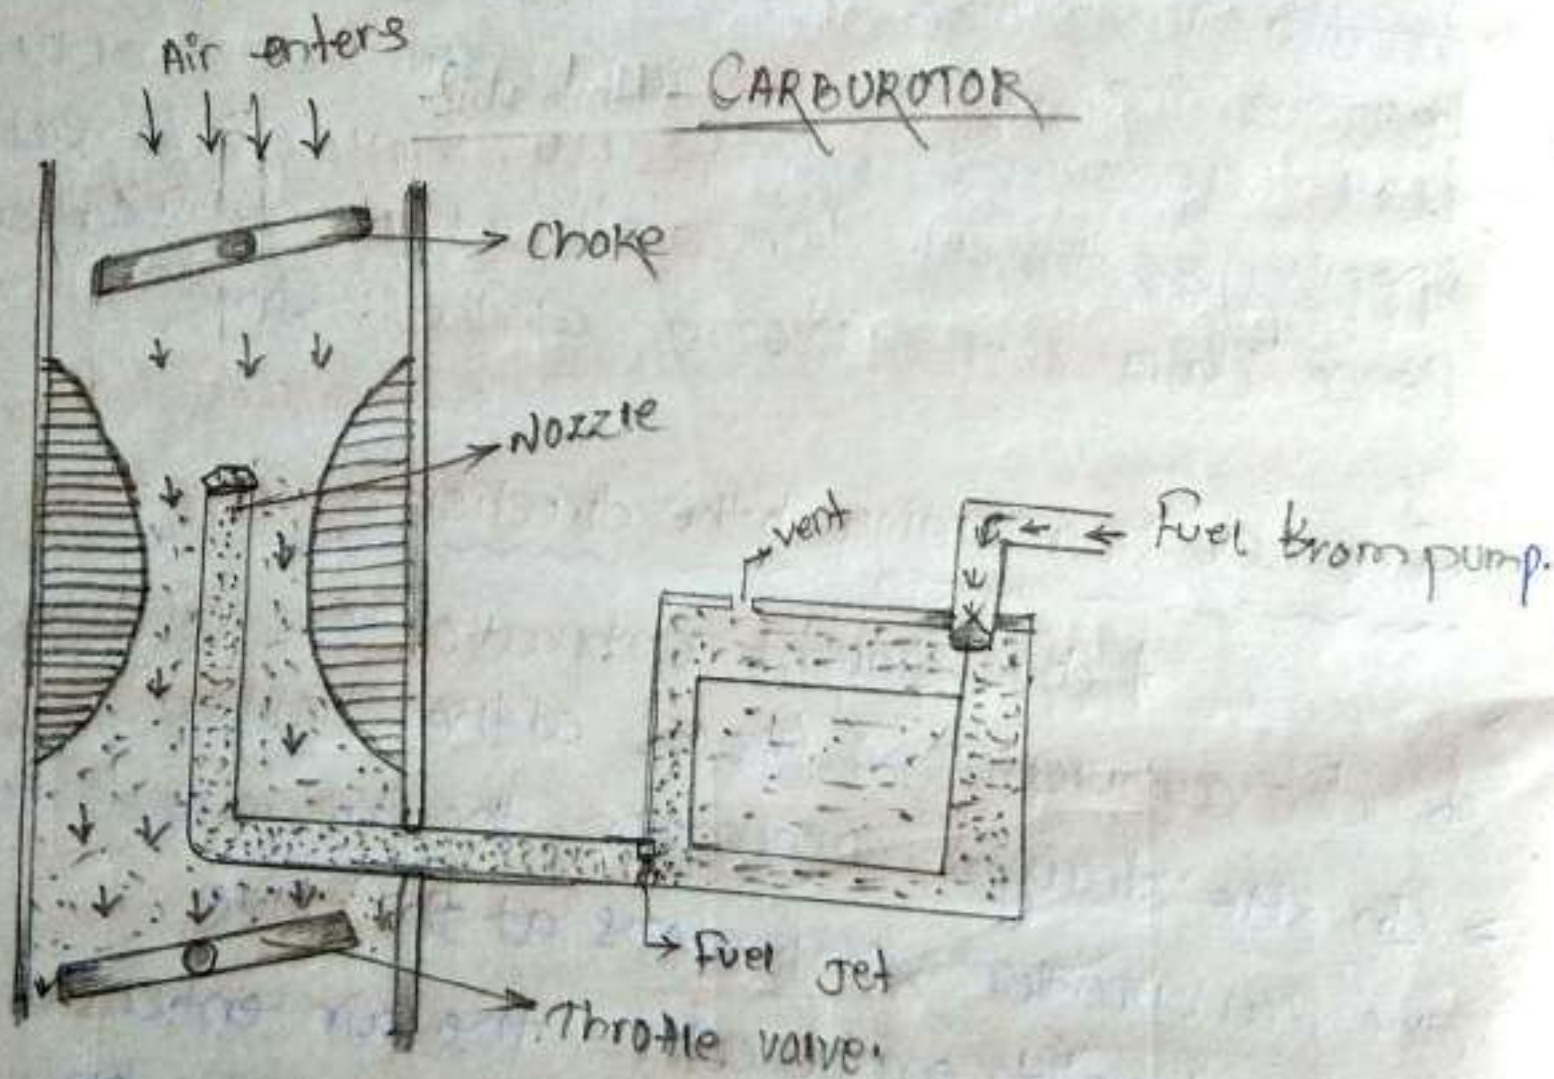 Air enters
CARBUROTOR
Choke
Nozzle
vent
Fuel from pump.
Fuel Jet
Throttle valve.